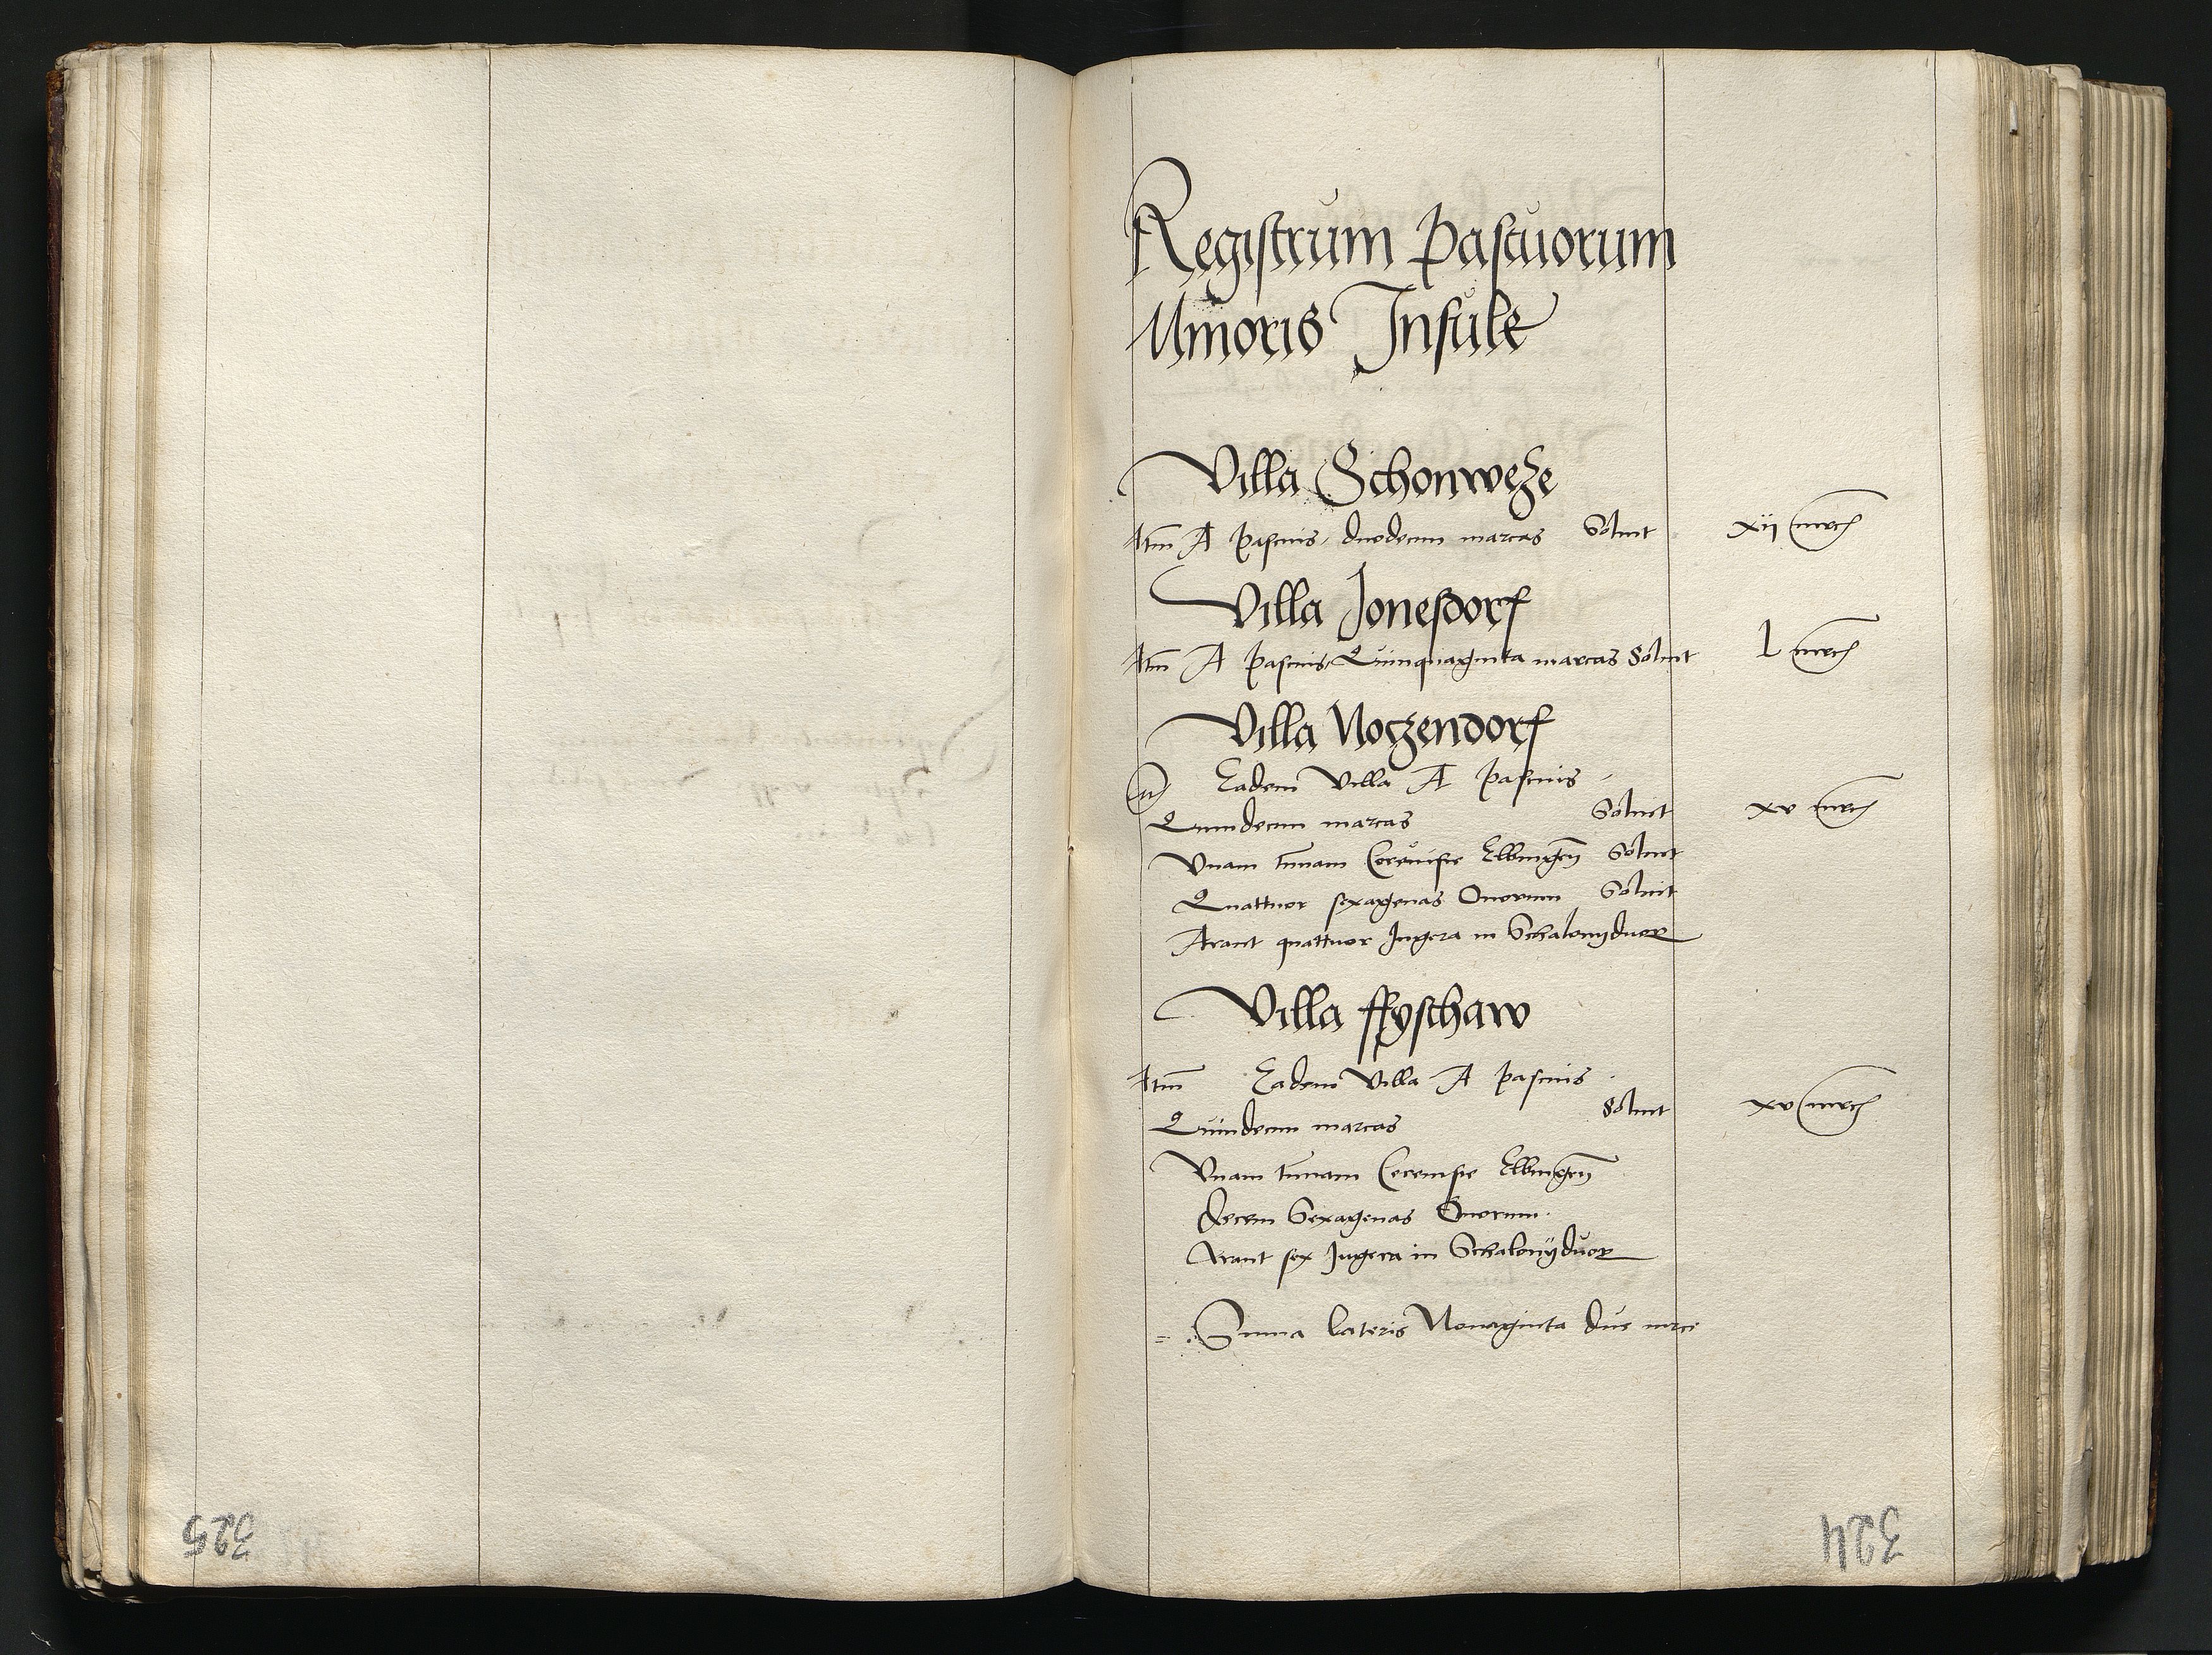 Registrum pascuorum
Minoris Insule
Villa Schonweze
Itm A pascuis duodecim marcas Soluit xij mrc
Villa Jonesdorf
Itm A pascuis Quinquaginta marcas Soluit l mrc
Villa Noczendorf
Eadem Villa A pascuis
Quindecim marcas Soluit xv mrc
Vnam tunnam Cereuisie Elbingen Soluit
Quattuor sexagenas Ouorum Soluit
Arant quattuor Jugera in Schalonyduor
Villa ffyschaw
Itm Eadem Villa A pascuis
Quindecim marcas Soluit xv mrc
Vnam tunnam Cereuisie Elbingen
Decem Sexagenas Ouorum
Arant sex Jugera in Schalonyduor
Suma lateris Nonaginta due mrce
325
324